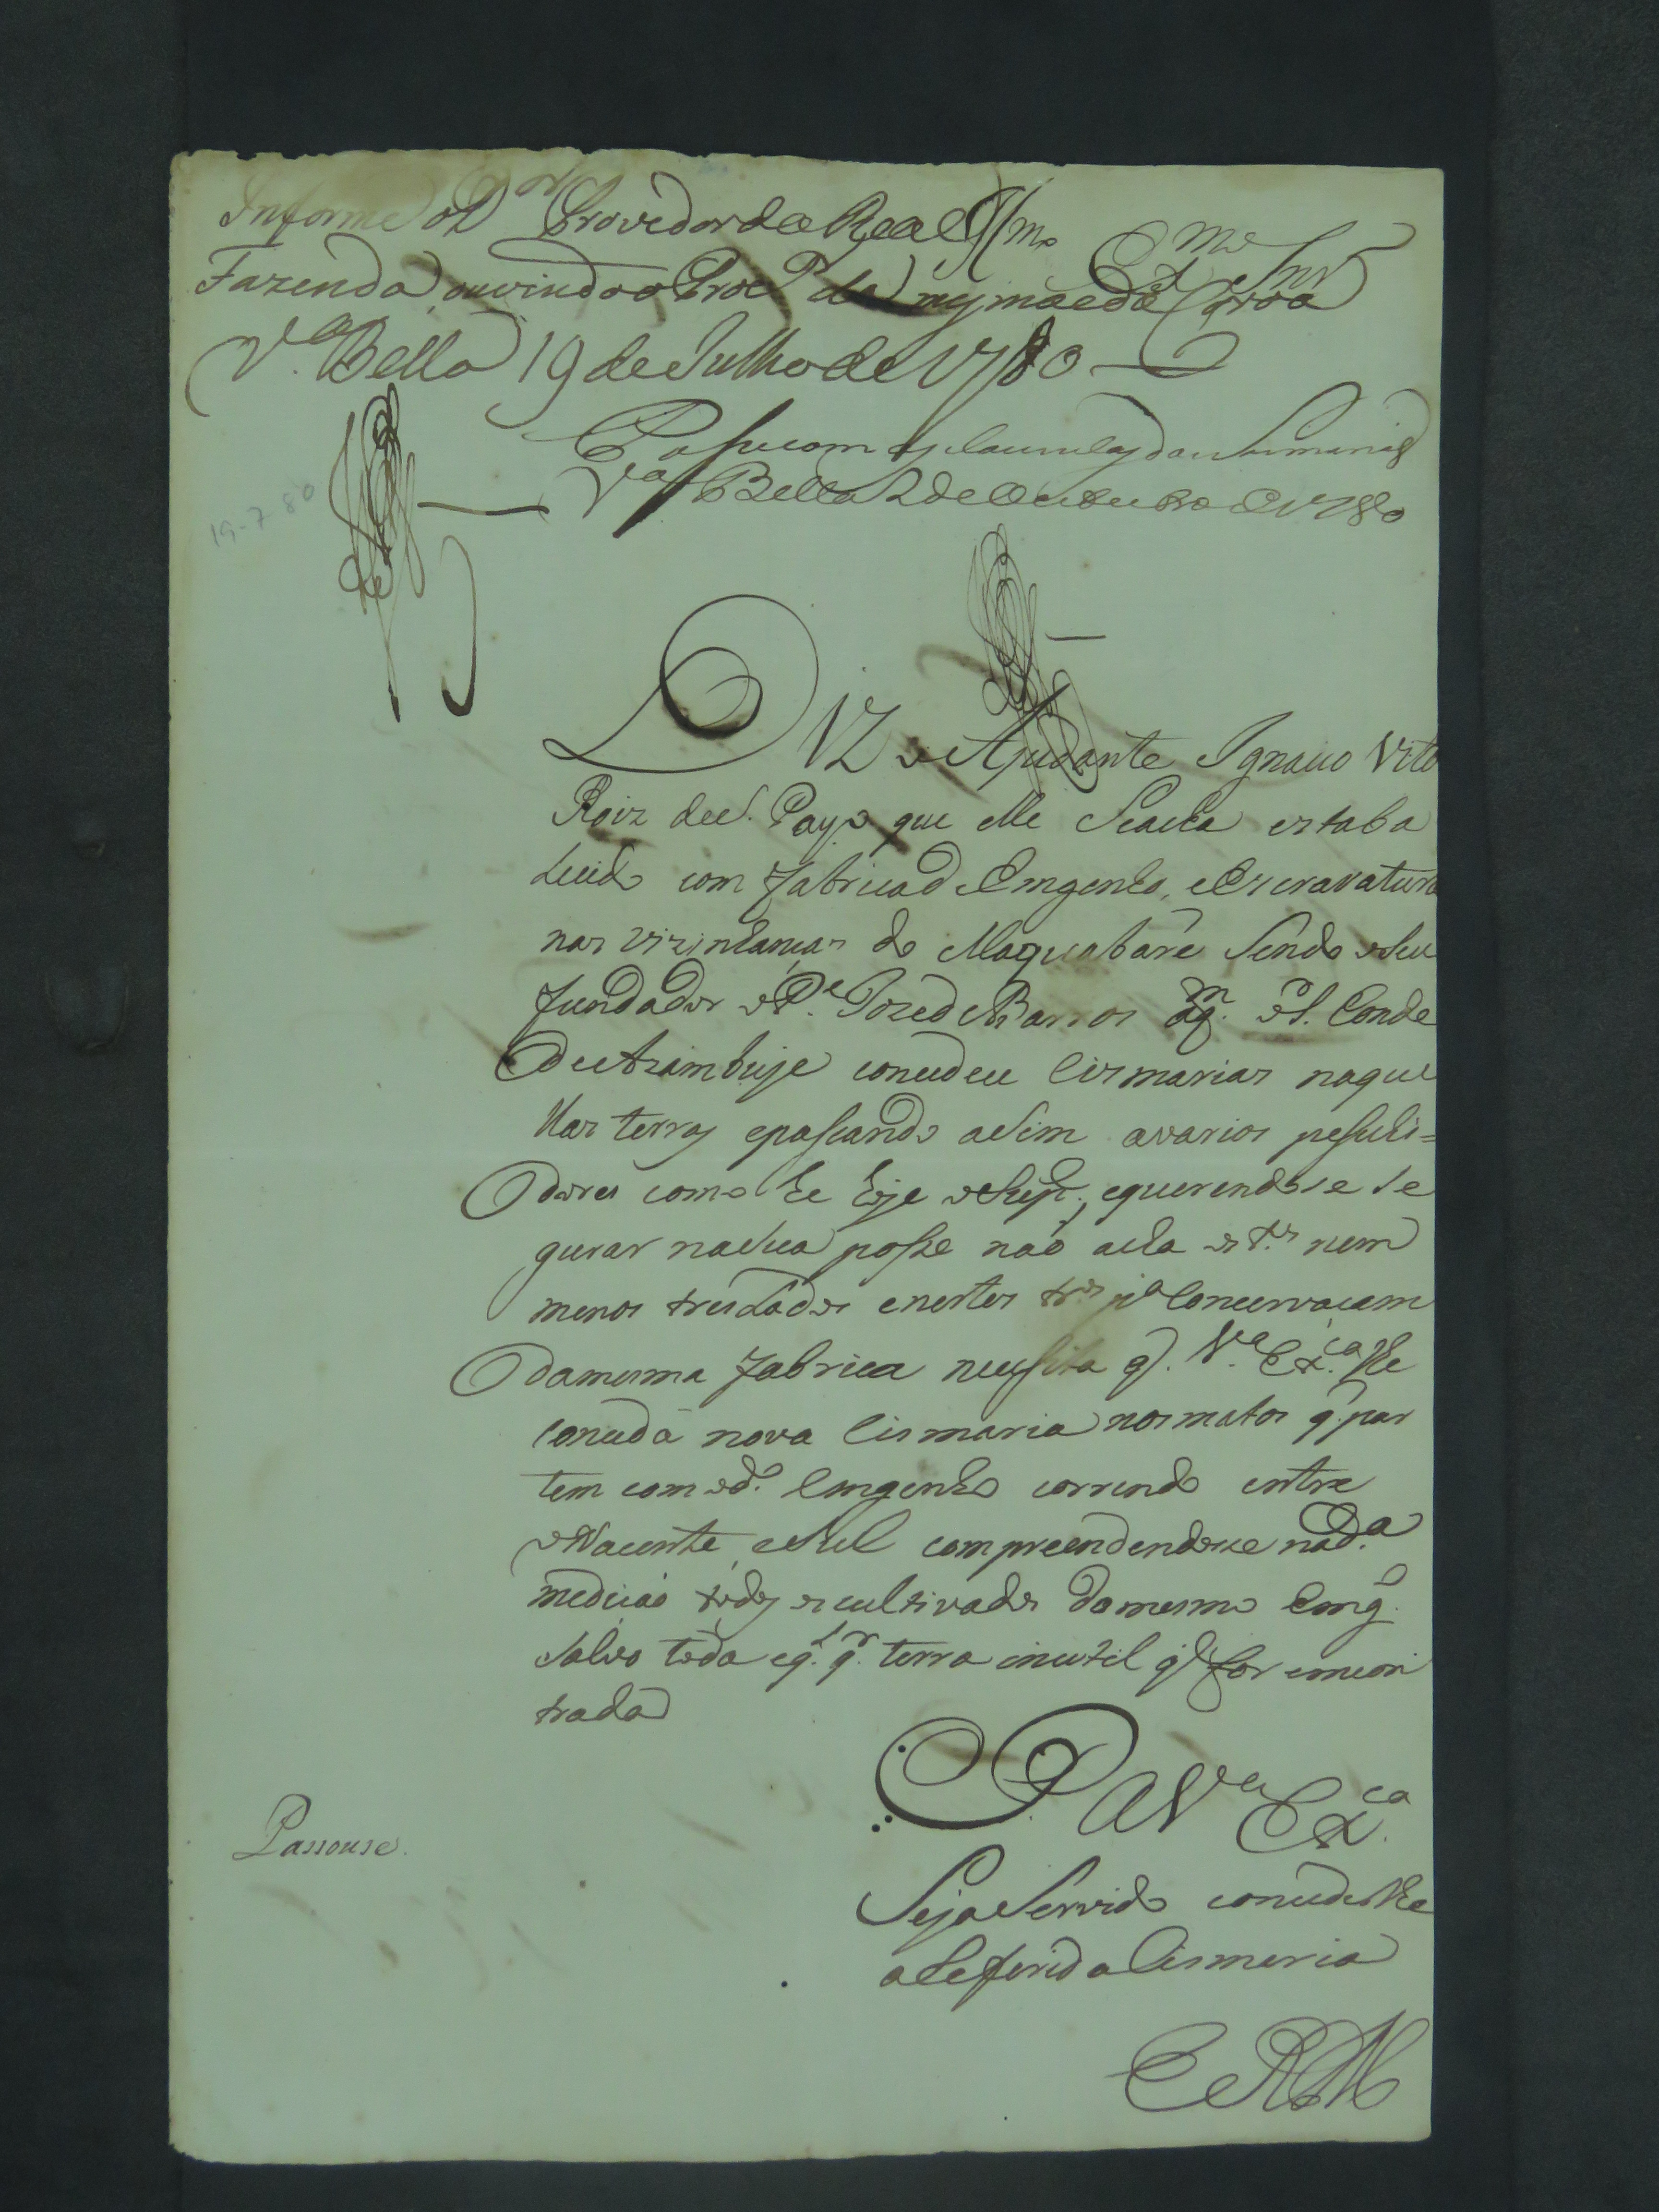 Informe o D.or Provedor da Real Ill.mo
Ex.mo Snr
Fazenda ouvindo o Proc.or da mesma e da Coroa
V.a Bella 19 de Julho de 1780
Passe com as clauzulas da Sismaria
V.a Bella 2 de Outubro de 1780
19-7-80
Diz o Ajudante Ignacio Vito
Roiz de que elle Seacha estaba
lecido com fabrica d Emgenho, e Escravatura
nas vizinhancas do Maquabare Sendo o Seu
fundador o P.e Joze d Barros aq.m o S. Conde
de Azambuje concedeu Cismarias naque
llas terras epassando a Sim a varios pessuhi=
dores como he hoje o Sup.e, equerendo se se
gurar na Sua posse naó acha os t.os nem
menos treslados e nestes tr.os p.a Concervacam
da mesma fabrica necessita q. V.a Ex.ca lhe
conceda nova Cismaria nos matos q. par
tem com o d.o Emgenho correndo entre
o Nacente e Sul compreendendose na d.a
medicaó todos os cultivados do mesmo Emg.o
Salvo toda e q.l q.r terra inutil q. for emcon
trada
P. a V.a Ex.ca
Passouse.
Seja Servido concederlhe
a Referida Cismaria
E R M